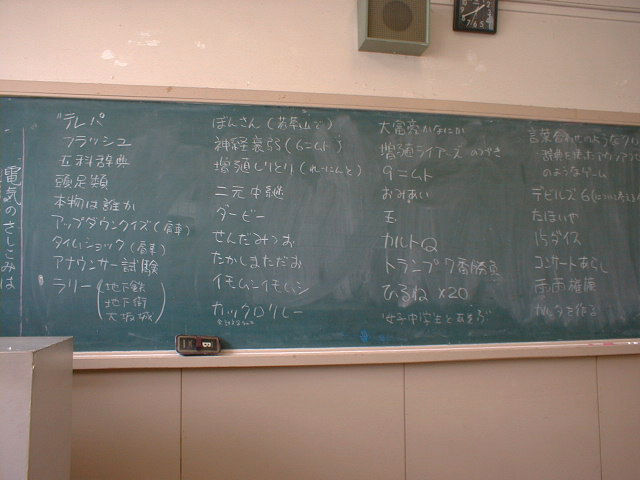 電気のさしこみは
テレパ
フラッシュ
五科辞典
頭足類
本物は誰か
アップダウンクイズ(肩車)
タイムショック(肩車)
アナウンサー試験
ラリー(地下鉄
地下街
大坂城)
ぼんさん(若草山で)
神経衰弱(6ニムト)
増殖しりとり(れーにんと)
二元中継
ダービー
せんだみつお
たかしまただお
イモムシイモムシ
カックロリレー
大富豪かなにか
増殖ライアーズ
9ニムト
おみあい
玉
カルトQ
トランプ7番勝負
ひるね×20
"女子中学生と
言葉合わせのような
辞典を使
のようなゲーム
デビルズ6
たほいや
15ダイス
コンサートあらし
雨雨権展
カルタを作る